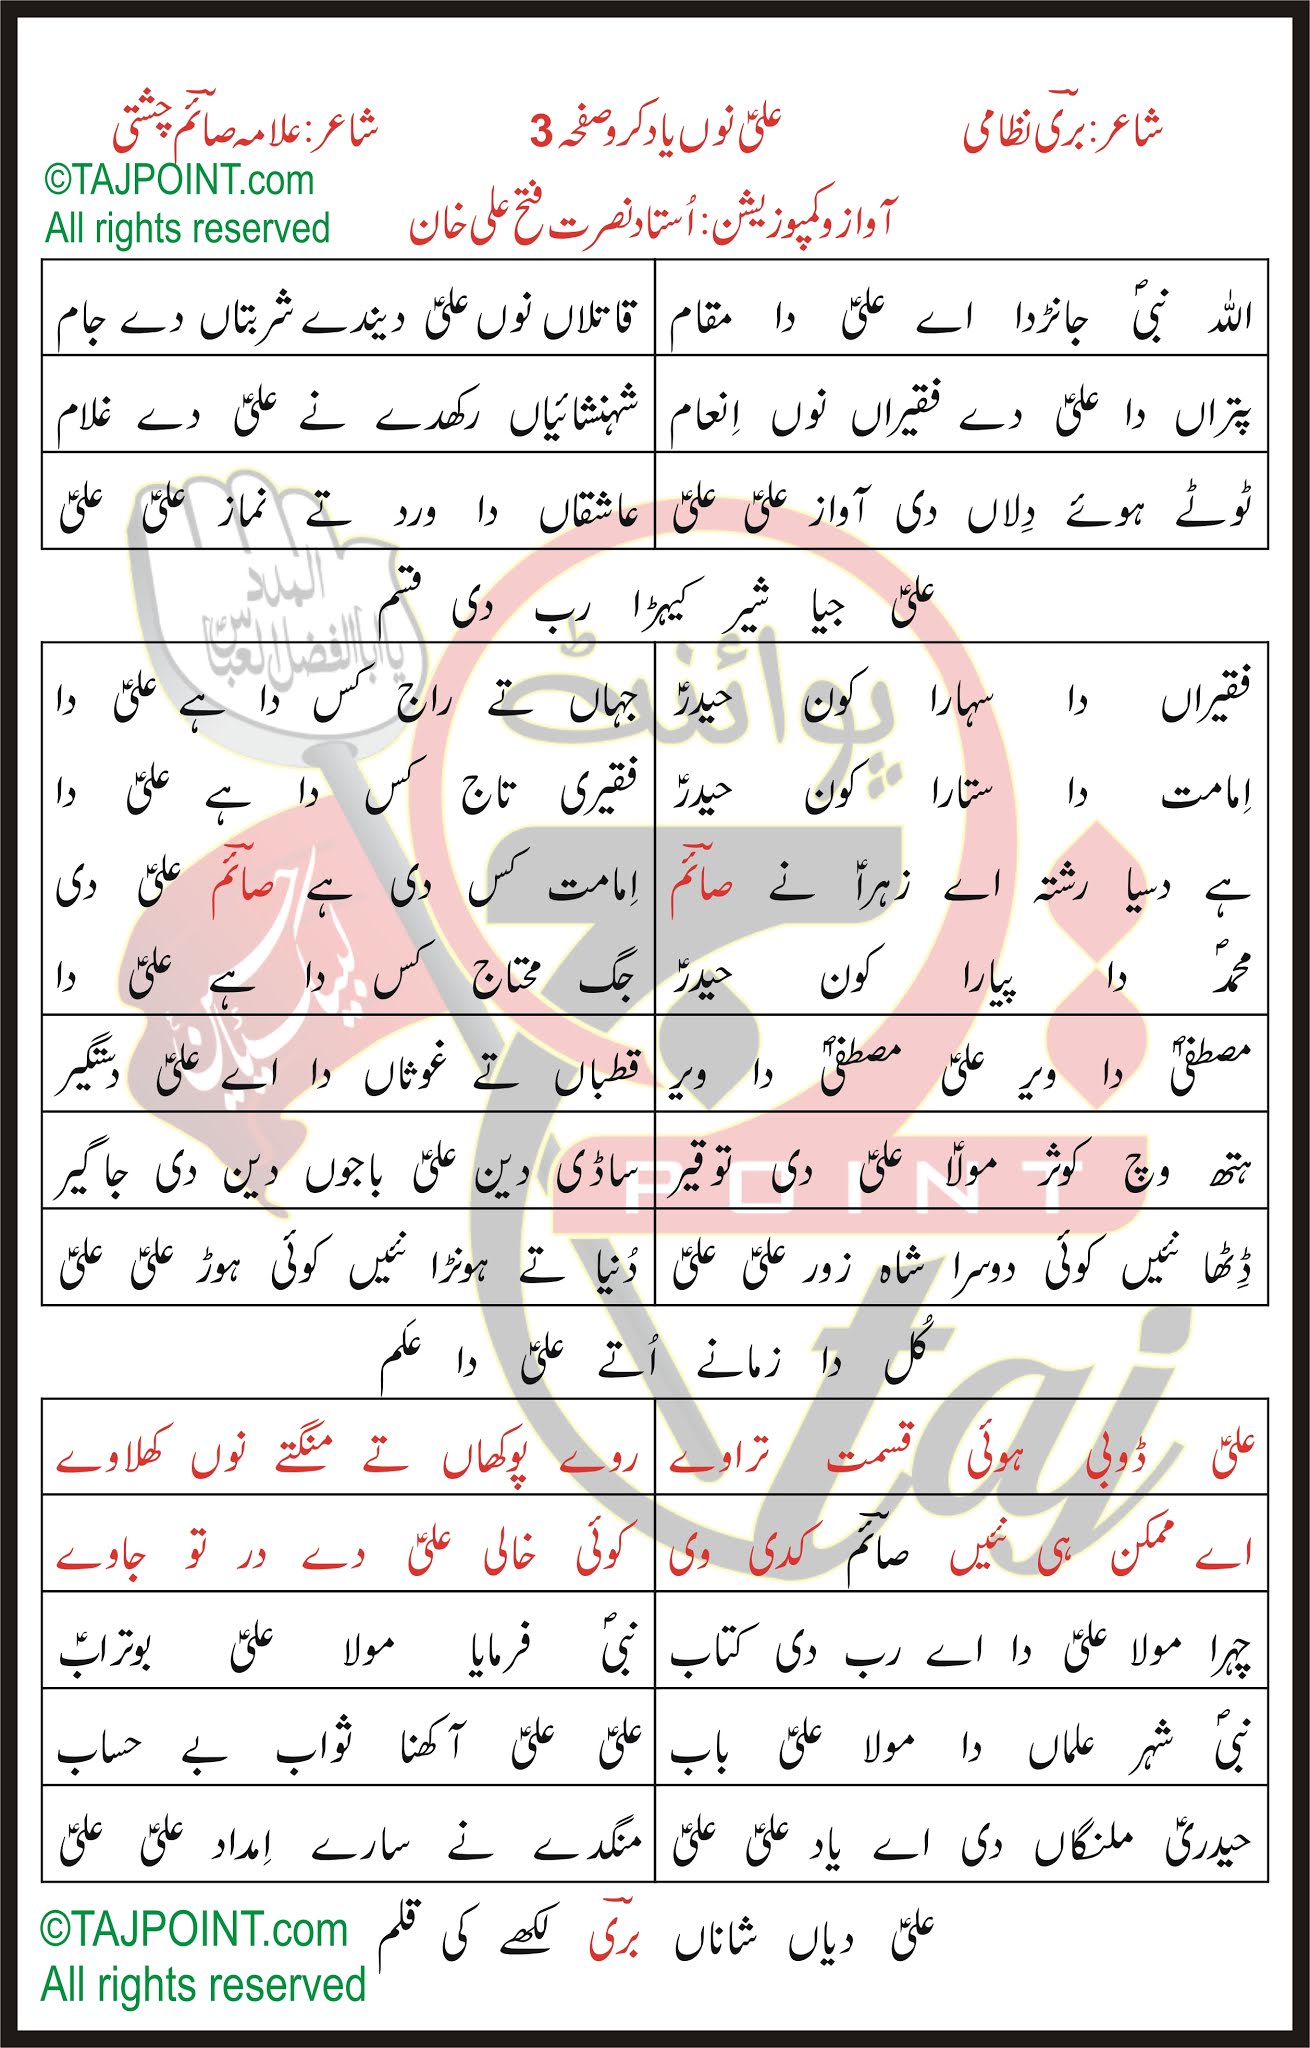 شاعر: بریؔ نظامی	علیؑ نوں یاد کرو صفحہ 3	شاعر: علامہ صائمؔ چشتی
©TAJPOINT.com
All rights reserved
آواز و کمپوزیشن: اُستاد نصرت فتح علی خان
اللہ نبیؐ جانڑدا اے علیؑ دا مقام	قاتلاں نوں علیؑ دیندے شربتاں دے جام
پتراں دا علیؑ دے فقیراں نوں اِنعام	شہنشائیاں رکھدے نے علیؑ دے غلام
ٹوٹے ہوئے دِلاں دی آواز علیؑ علیؑ	عاشقاں دا ورد تے نماز علیؑ علیؑ
علیؑ جیا شیر کیہڑا رب دی قسم
فقیراں دا سہارا کون حیدرؑ	جہاں تے راج کس دا ہے علیؑ دا
اِمامت دا ستارا کون حیدرؑ	فقیری تاج کس دا ہے علیؑ دا
ہے دسیا رشتہ اے زہراؑ نے صائمؔ	اِمامت کس دی ہے صائمؔ علیؑ دی
محمدؐ دا پیارا کون حیدرؑ	جگ محتاج کس دا ہے علیؑ دا
مصطفیؐ دا ویر علیؑ مصطفیؐ دا ویر	قطباں تے غوثاں دا اے علیؑ دستگیر
ہتھ وچ کوثر مولاؑ علیؑ دی توقیر	ساڈی دین علیؑ باجوں دین دی جاگیر
ڈِٹھا نئیں کوئی دوسرا شاہ زور علیؑ علیؑ	دُنیا تے ہونڑا نئیں کوئی ہوڑ علیؑ علیؑ
کُل دا زمانے اُتے علیؑ دا عَلم
علیؑ ڈوبی ہوئی قسمت تراوے	روے پوکھاں تے منگتے نوں کھلاوے
اے ممکن ہی نئیں صائمؔ کدی وی	کوئی خالی علیؑ دے در تو جاوے
چہرا مولا علیؑ دا اے رب دی کتاب	نبیؐ فرمایا مولا علیؑ بوترابؑ
نبیؐ شہر علماں دا مولا علیؑ باب	علیؑ علیؑ آکھنا ثواب بے حساب
حیدریؑ ملنگاں دی اے یاد علیؑ علیؑ	منگدے نے سارے اِمداد علیؑ علیؑ
علیؑ دیاں شاناں بریؔ لکھے کی قلم
©TAJPOINT.com
All rights reserved
المدد
یا ابالفضل العباسؑ
لبیک یا حسینؑ
پوائنٹ
تاج
POINT
taj